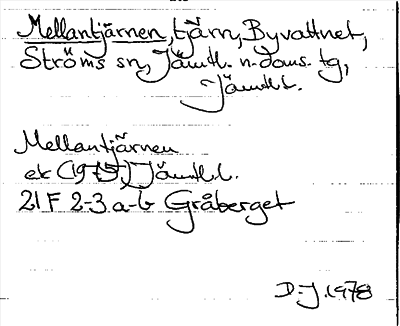 Mellantjärnen, tjärn, Byvattnet,
Ströms sn, Jämtl. n. doms. tg,
Jämtl l.
Mellantjärnen
ek (1975) Jämtl.l.
21F 2-3 a-b Gråberget
D-J. 1978